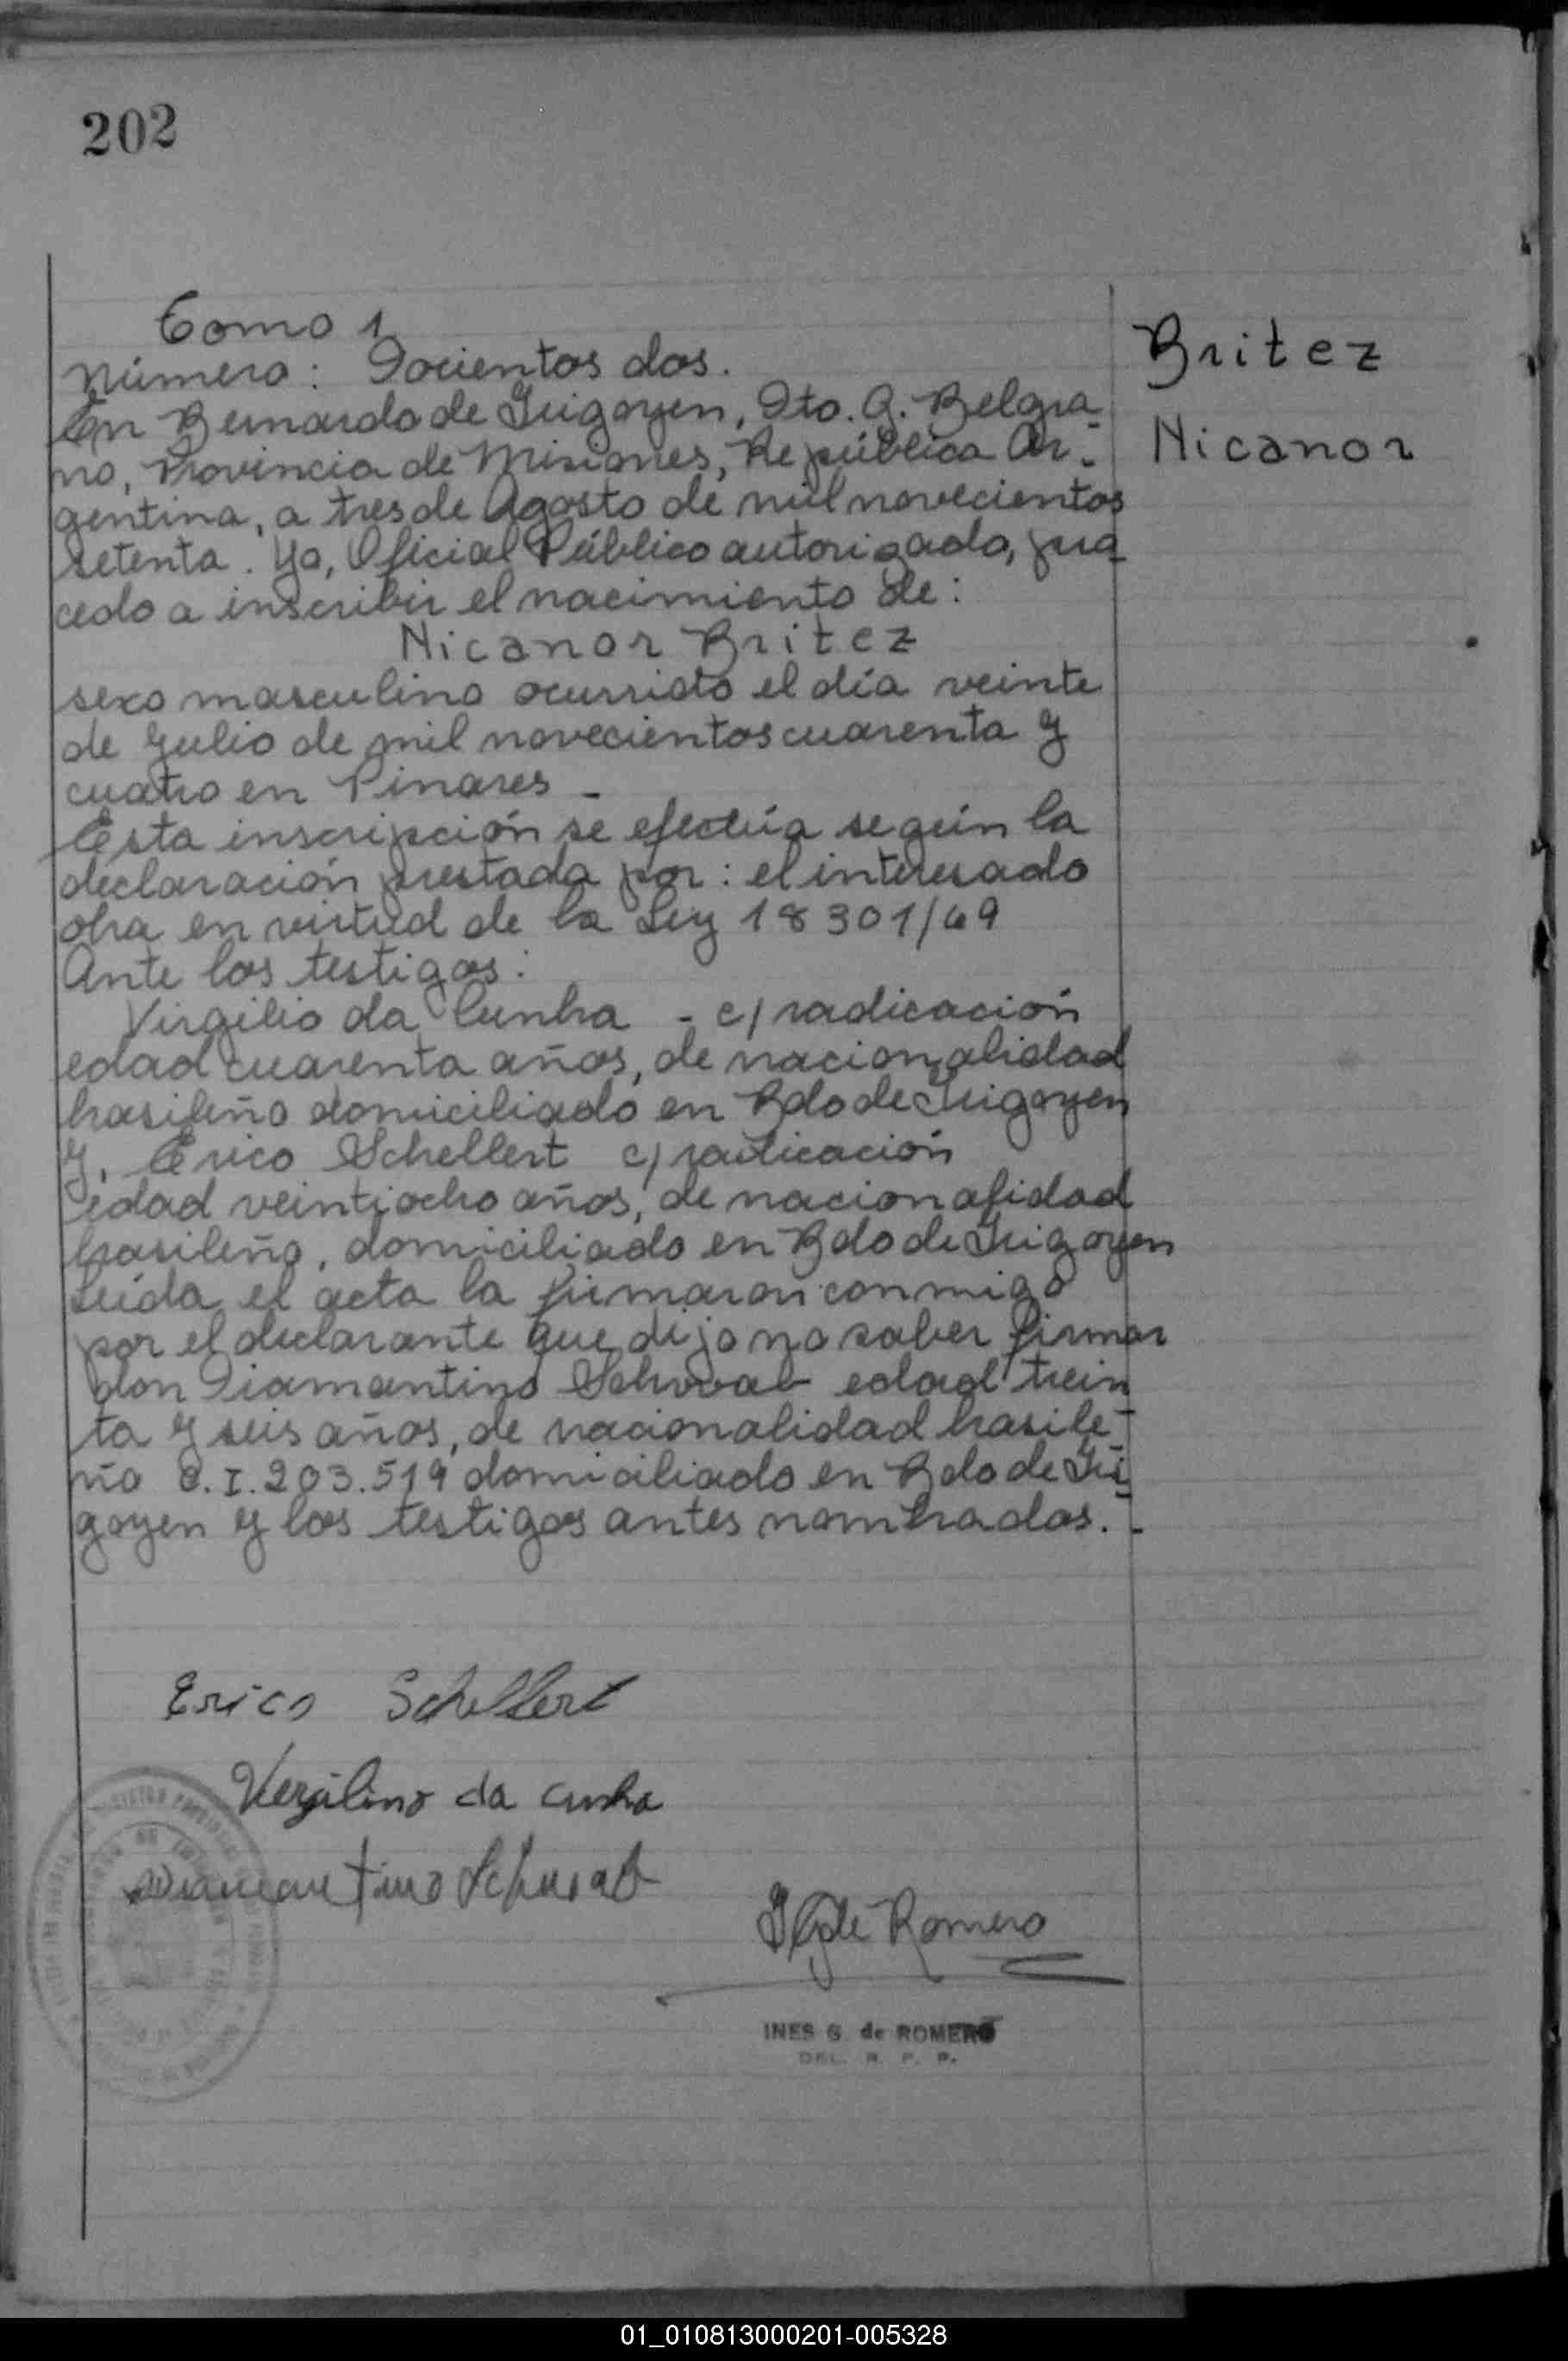 202
Tomo 1
Número: Docientos dos.
En Bernardo de Irigoyen, Dto. G. Belgra-
no, Provincia de Misiones, República Ar-
gentina, a tres de Agosto de mil novecientos
setenta. Yo, Oficial Público autorizado, pro
cedo a inscribir el nacimiento de:
Nicanor Britez
sexo masculino ocurrido el día veinte
de Julio de mil novecientos cuarenta y
cuatro en Pinares -
Esta inscripción se efectúa según la
declaración prestada por: el interesado
obra en virtud de la Ley 18301/69
Ante los testigos:
Virgilio da Cunha - c/ radicación
edad cuarenta años, de nacionalidad
brasileño domiciliado en Bdo de Irigoyen
y. Erico Schellert c/ radicación
edad veintiocho años, de nacionalidad
brasileño, domiciliado en Bdo de Irigoyen
Leída el acta la firmaron conmigo
por el declarante que dijo no saber firmar
don Diamantino Schwab edad trein
ta y seis años, de nacionalidad brasile-
ño C.I. 203.519 domiciliado en Bdo de Iri
goyen y los testigos antes nombrados. -
Britez
Nicanor
Erico Schellert
Vergilino da Cunha
Diamantino Schwab
de Romero
INES G. de ROMERO
DEL. R. P. P.
01_010813000201-005328